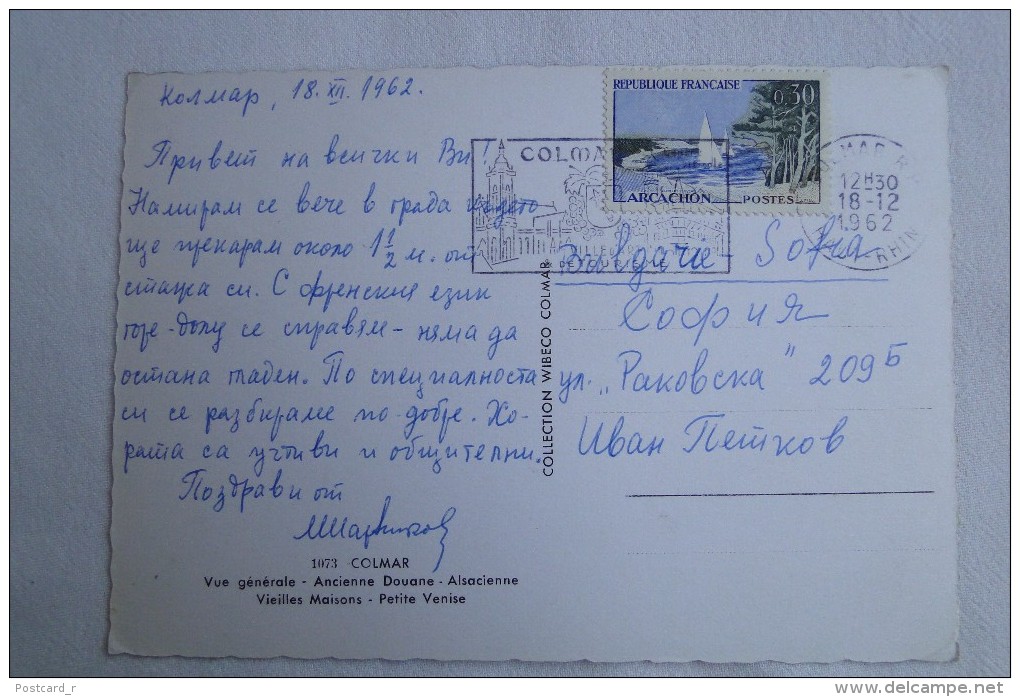 Колмар, 18.XII.1962.
Привет на всички Ви!
Намирам се вече в града където
ще прекарам около 1 1/2 м. от
стажа си. С френския език
горе-долу се справям - няма да
остана гладен. По специалността
си се разбираме по-добре. Хо-
рата са учтиви и общителни.
Поздрави от
1073 COLMAR
Vue générale - Ancienne Douane - Alsacienne
Vieilles Maisons - Petite Venise
COLLECTION WIBECO COLMAR
REPUBLIQUE FRANÇAISE
0,30
ARCACHON POSTES
COLMAR
12H30
18-12
1962
RHIN
Bulgarie - Sofia
София
ул. „Раковска" 209Б
Иван Петков
Postcard_r
delcampe.net